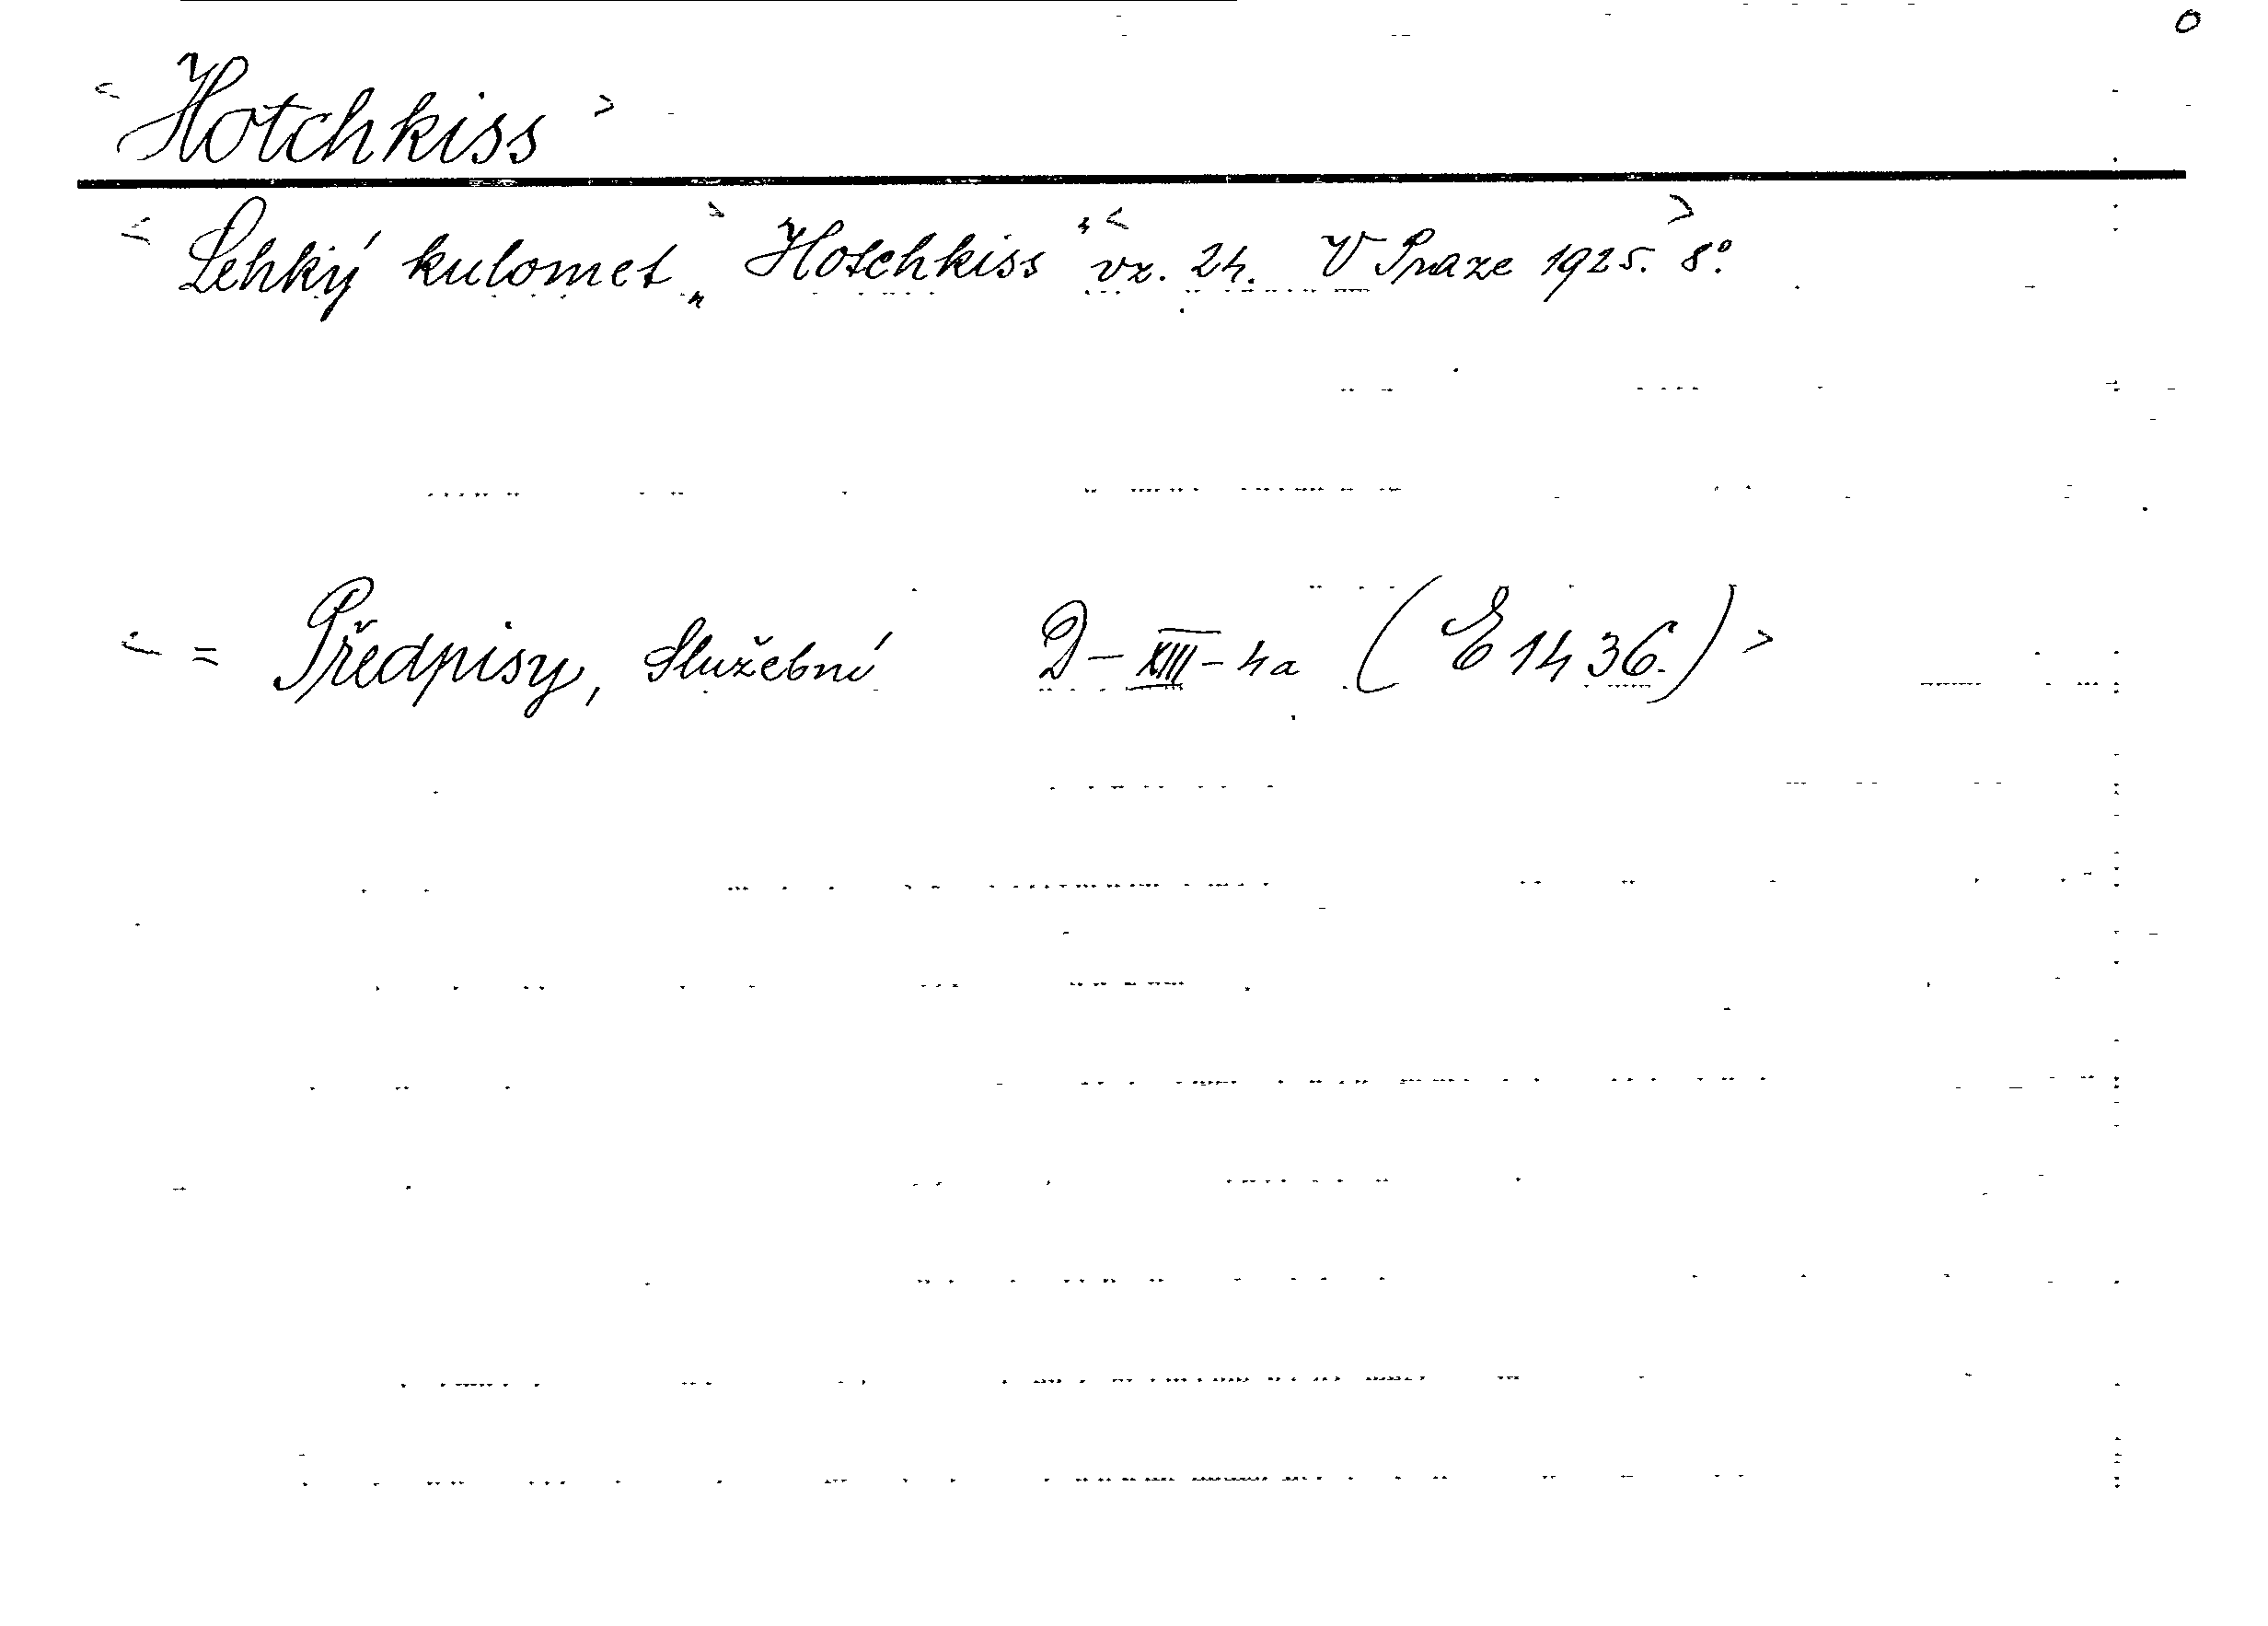 0
< Hotchkiss >
< Lehký kulomet > „Hotchkiss“ < vz. 24. V Praze 1925. > 8°.
< = Předpisy, služební D-XIII-4a (E 1436.) >